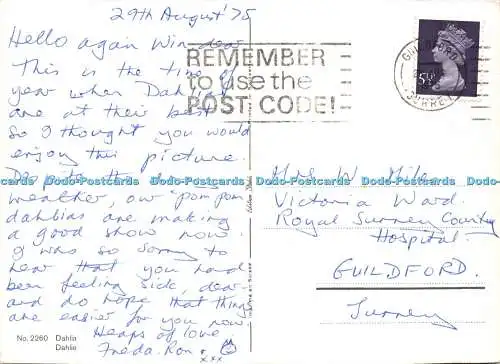 29th August '75
Hello again Win dear
This is the time of
year when Dahlias
are at their best
so I thought you would
enjoy this picture.
Despite the
weather, our pom pom
dahlias are making
a good show now.
I was so sorry to
hear that you have
been feeling sick, dear
and do hope that things
are easier for you now
Heaps of love
Freda. Ron. xxx
No. 2260 Dahlia
Dahlie
REMEMBER
to use the
POST CODE!
GUILDFORD
SURREY
5½P
Mrs W
Victoria Ward.
Royal Surrey County
Hospital.
GUILDFORD.
Surrey
Dodo-Postcards Dodo-Postcards Dodo-Postcards Dodo-Postcards Dodo-Postcards